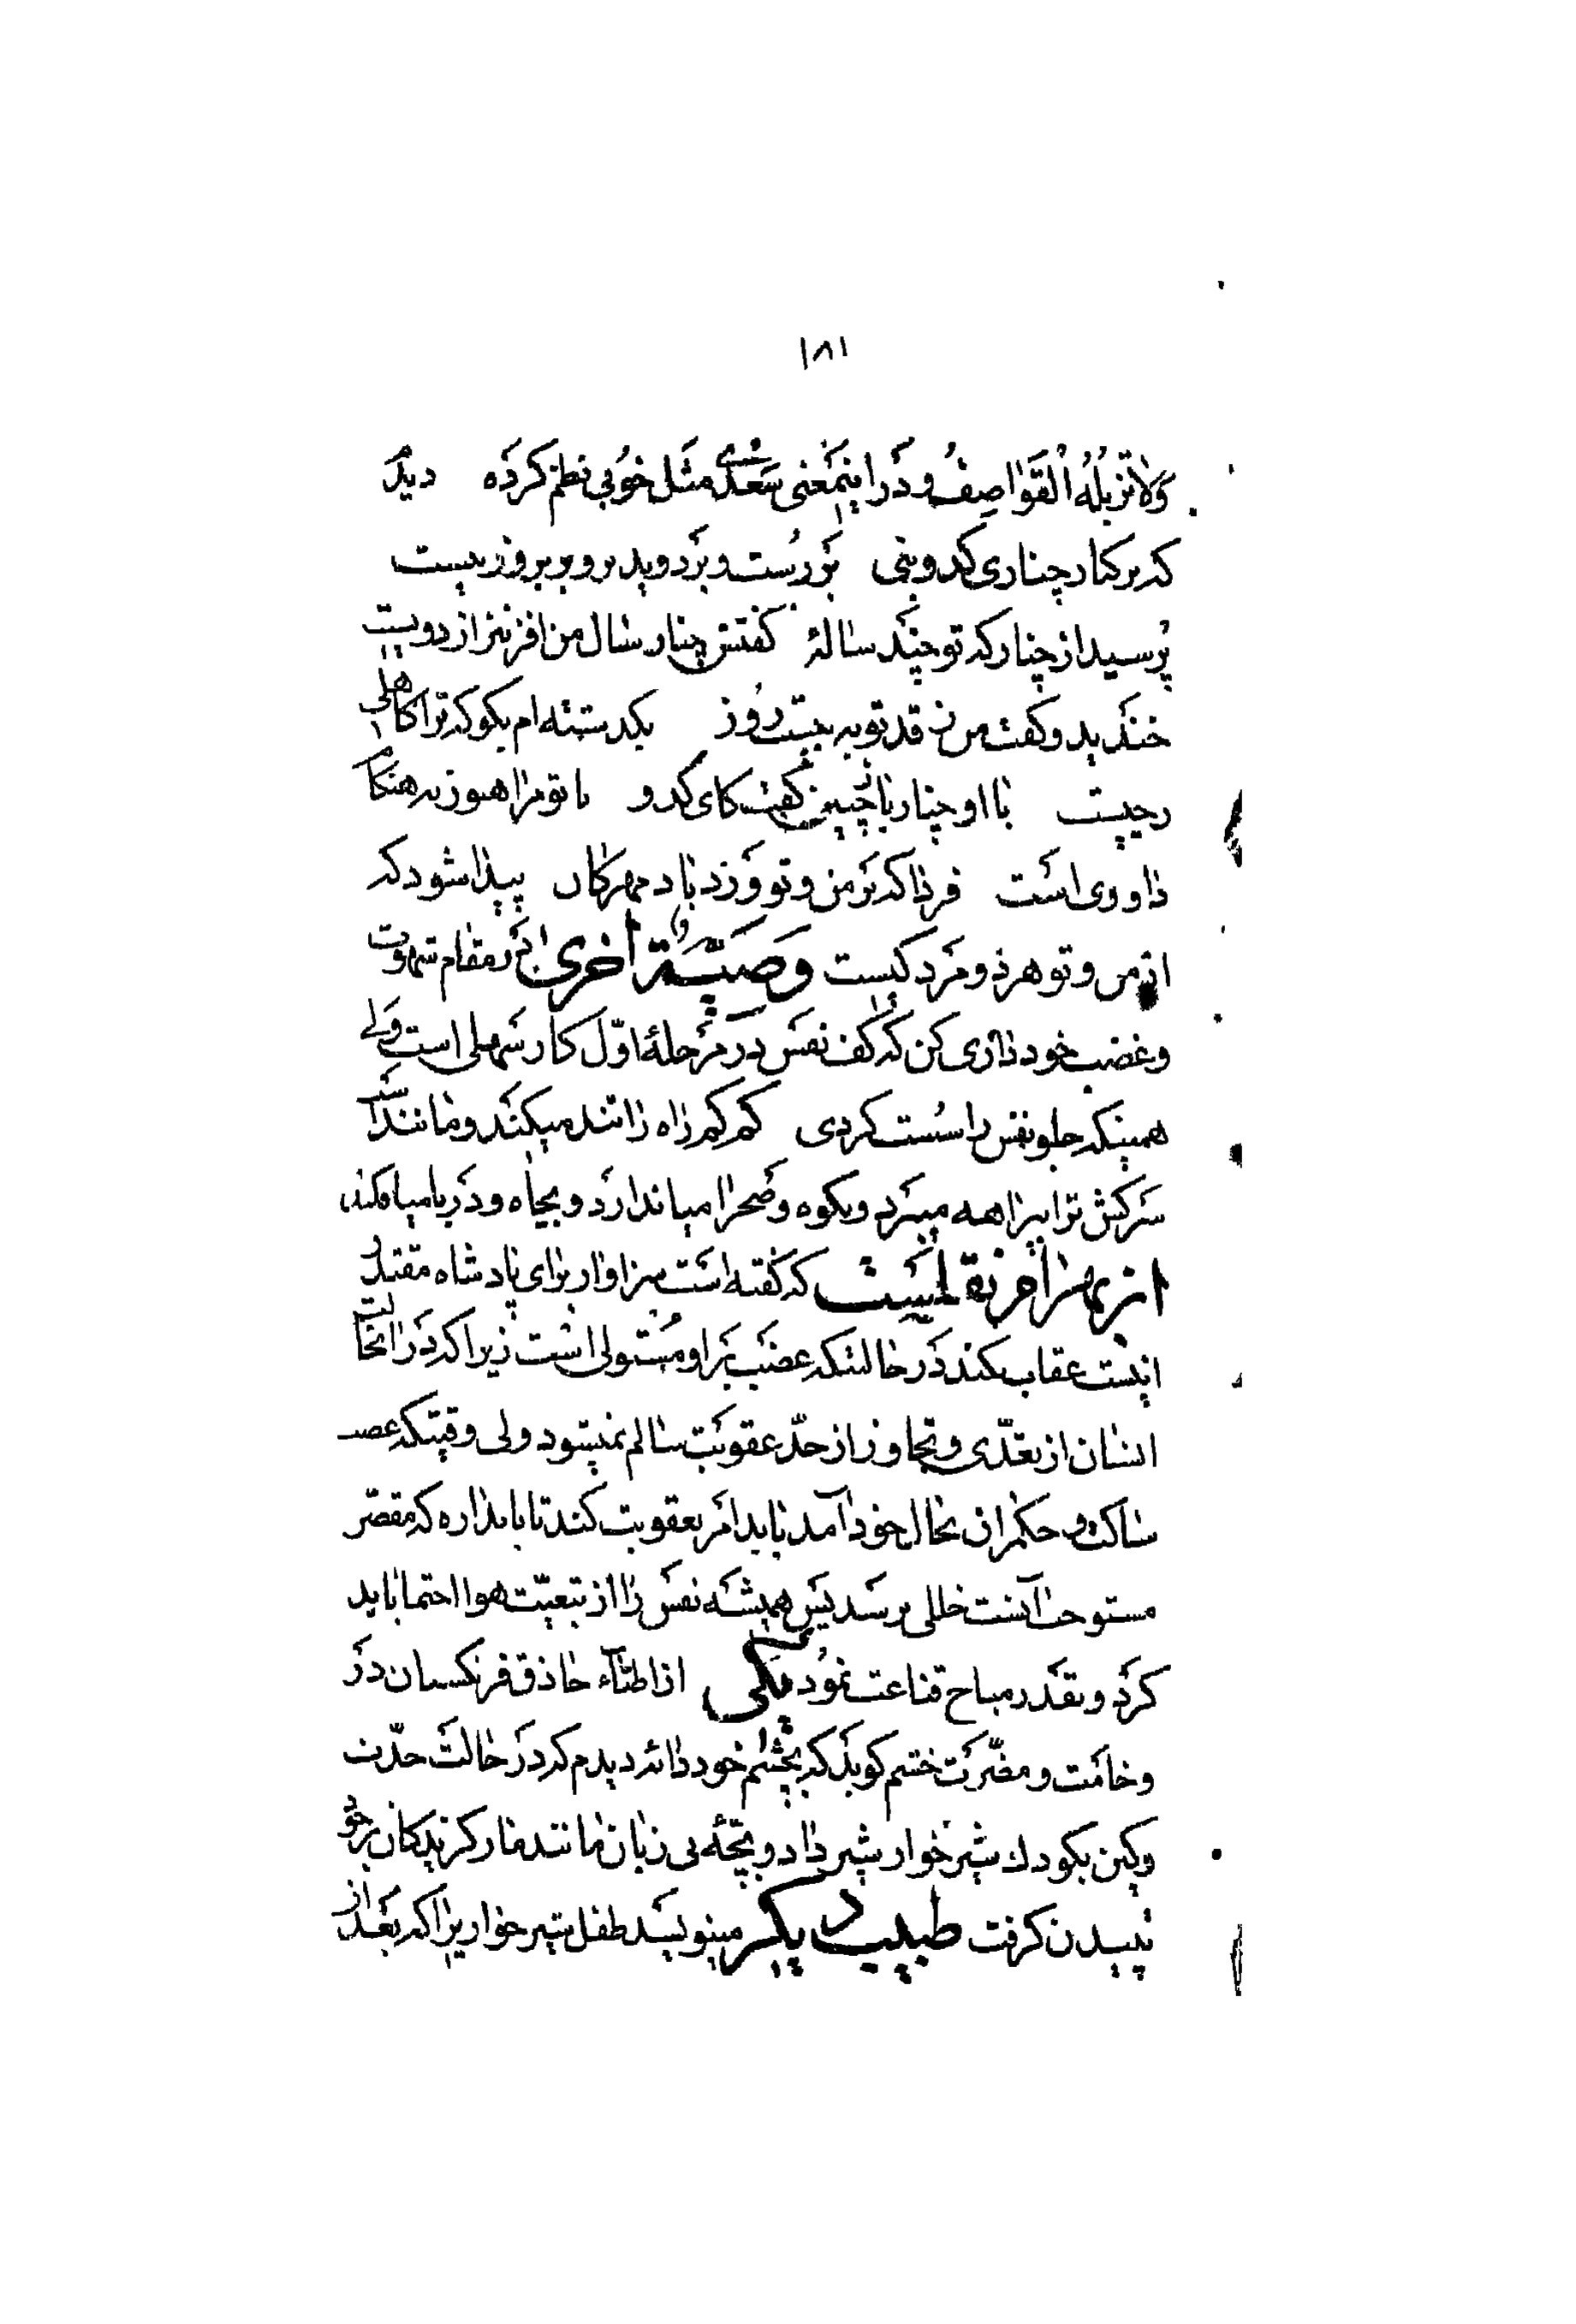 ۱۸۱
وَلاٰتزیلُهُ اْلقَوٰاصِفُ و دَر اینمَعنی سَعْدی مثَل خوُبی نظم کردَه دیدی
که بر کنار چناری کدوبنی بَررُست و بَردوید برو بر بروز بیست
پُرسید از چنار که تو چَند سالۀ گفتش چنار سٰال من افزونتر از دویست
خندَید و گفت من ز قد تو به بیست رُوز بگذشته‌ام بگو که ترا کاهلی
زچیست با او چنار باچنین گفت کای کَدو با تو مرا هنوز نه هنگام
دٰاوری اسَت فردٰا که بَر من و تو وَزد باد مهرکٰان پیدا شود که
از من و تو هرذ و مَرد کیست وَصیّةٌ اُخریٰ دَر مقام شهوت
و غضب خود دٰاری کن که کف نفسَ در مَرحلۀ اوّل کار سَهلی است ولی
همینکه جلو نفس را سُست کردی کم کم رٰاه رٰا تند میکنَد و مٰانند اَسب
سَرکش ترا بیراهه میبَرد و بکوه وصَحرا میاندازَد و بچاه و دَریا میافکند
از بهرٰام نقل است که گفته است سزاوار برٰای پادشاه مقتدر
اینست عقاب نکند دَر حٰالتیکه غضَب بَر او مُستولی است زیرا که دَر انحالت
انسان از تعدّی و تجاوز از حدّ عقوبَت سٰالم نمیشود ولی وقتیکه غضب
سٰاکت و حکمران بحال خود آمد باید امَر بعقوبت کند تا باندازه که مقصّر
مستوجب آنست خللی نرسَد پَس همیشه نفسَ رٰا از تبعیّت هوا احتما باید
کرد و بقدَر مباح قناعت نموُد یکی از اطبّآء حٰاذق فرنکستان دَر
وخامَت و مضرّت خشم گویَد که بچشَم خود دٰائه دیدم که دَر حٰالتَ حدّت
و کین بکودك شیر خوار شیر دٰاد و بچّۀ بی زبان مٰانند مٰار گزیدکان بر خود
پیپیدن گرفت طبیب دیگر مینویسَد طفل شیر خوار یرٰا که بعَد از